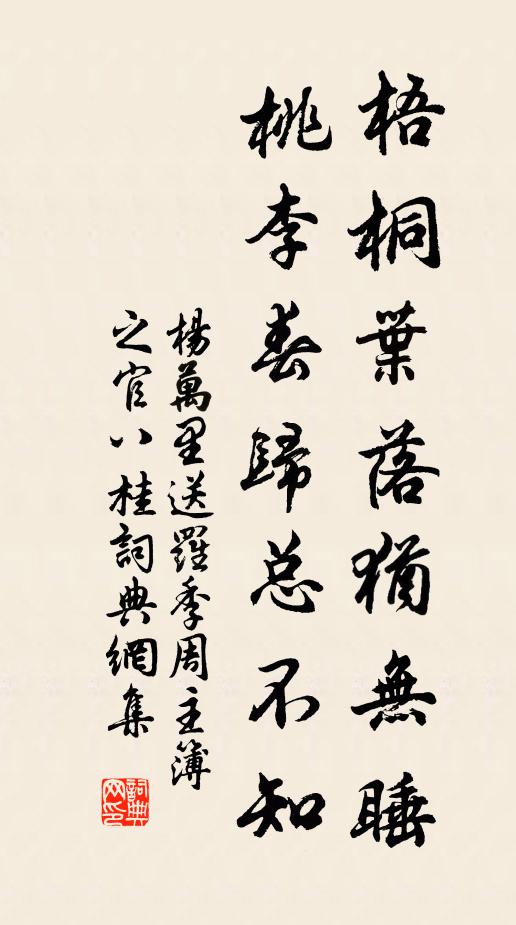 梧桐葉落猶無睡
桃李春歸总不知
楊萬里送羅季周主簿
之官八桂詞典網集
詞典
网印